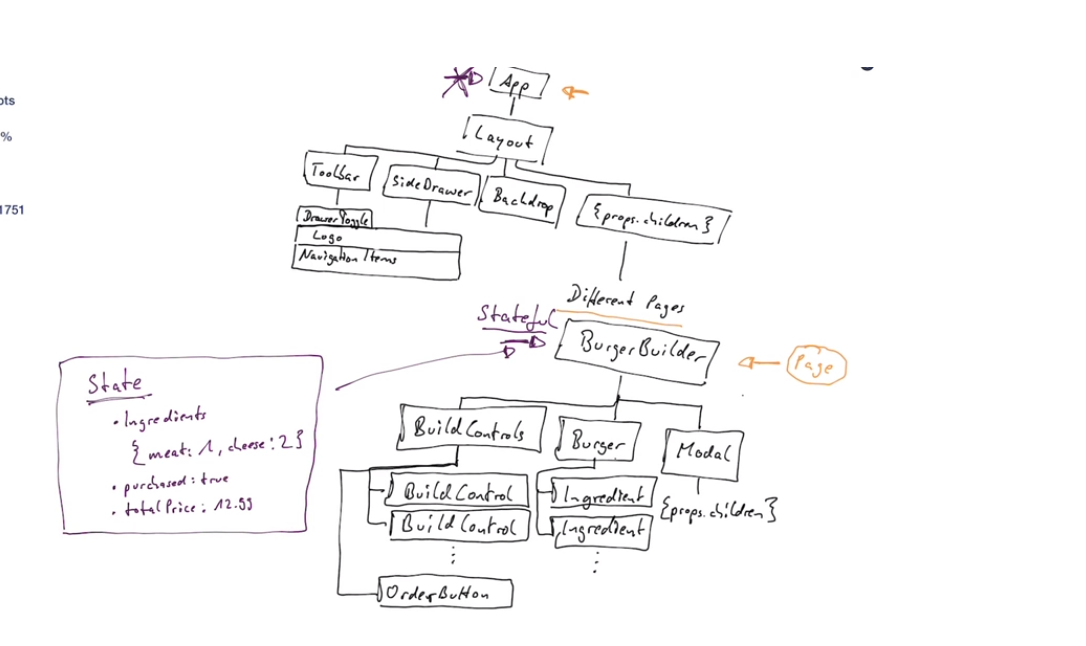 pts
%
1751
App
Layout
Toolbar
SideDrawer
Backdrop
{props.children}
DrawerToggle
Logo
Navigation Items
Different Pages
Stateful
BurgerBuilder
Page
State
• Ingredients
{meat: 1, cheese: 2}
• purchased: true
• totalPrice: 12.99
Build Controls
Burger
Modal
Build Control
Build Control
⋮
OrderButton
Ingredient
Ingredient
⋮
{props.children}